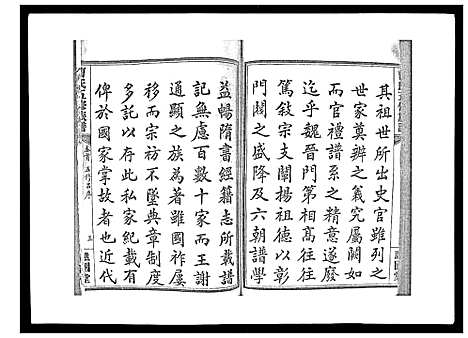 其祖世所出史官雖列之
世家莫辨奠繫之義究屬闕如
而官禮譜系之精意遂廢
迄乎魏晉門第相高往往
篤敘宗支闡揚祖德以彰
門閥之盛降及六朝譜學
益暢隋書經籍志所載譜
記無慮百數十家而王謝
通顯之族為著雖國祚屢
移而宗祊不墜典章制度
多託以存此私家紀載有
禆國家掌故者也近代